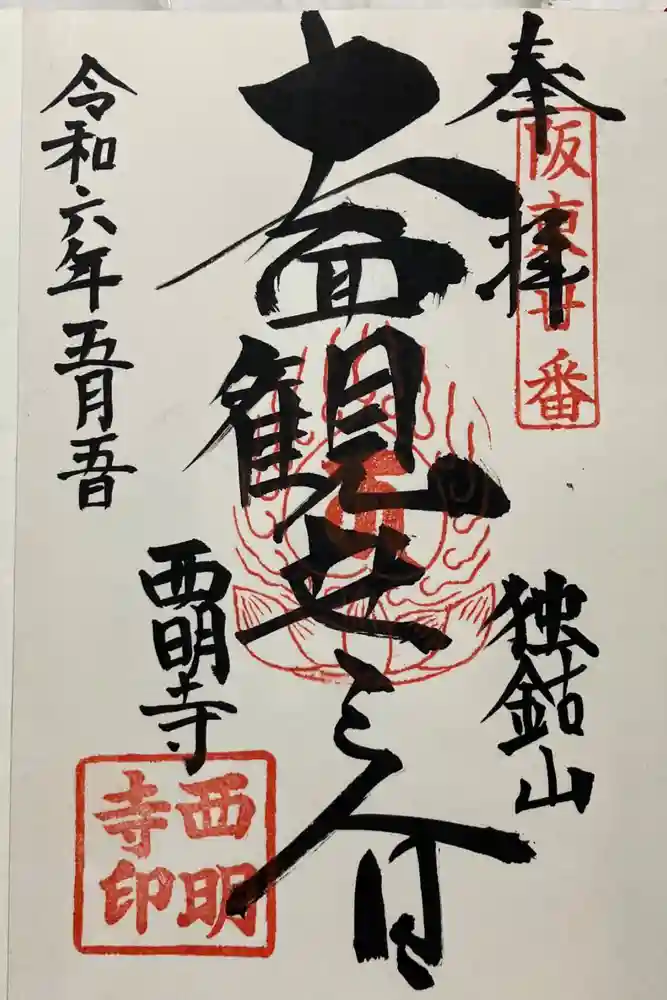 奉拝
阪東廿番
独鈷山
十一面観世音
西明寺
令和六年五月五日
西明
寺印